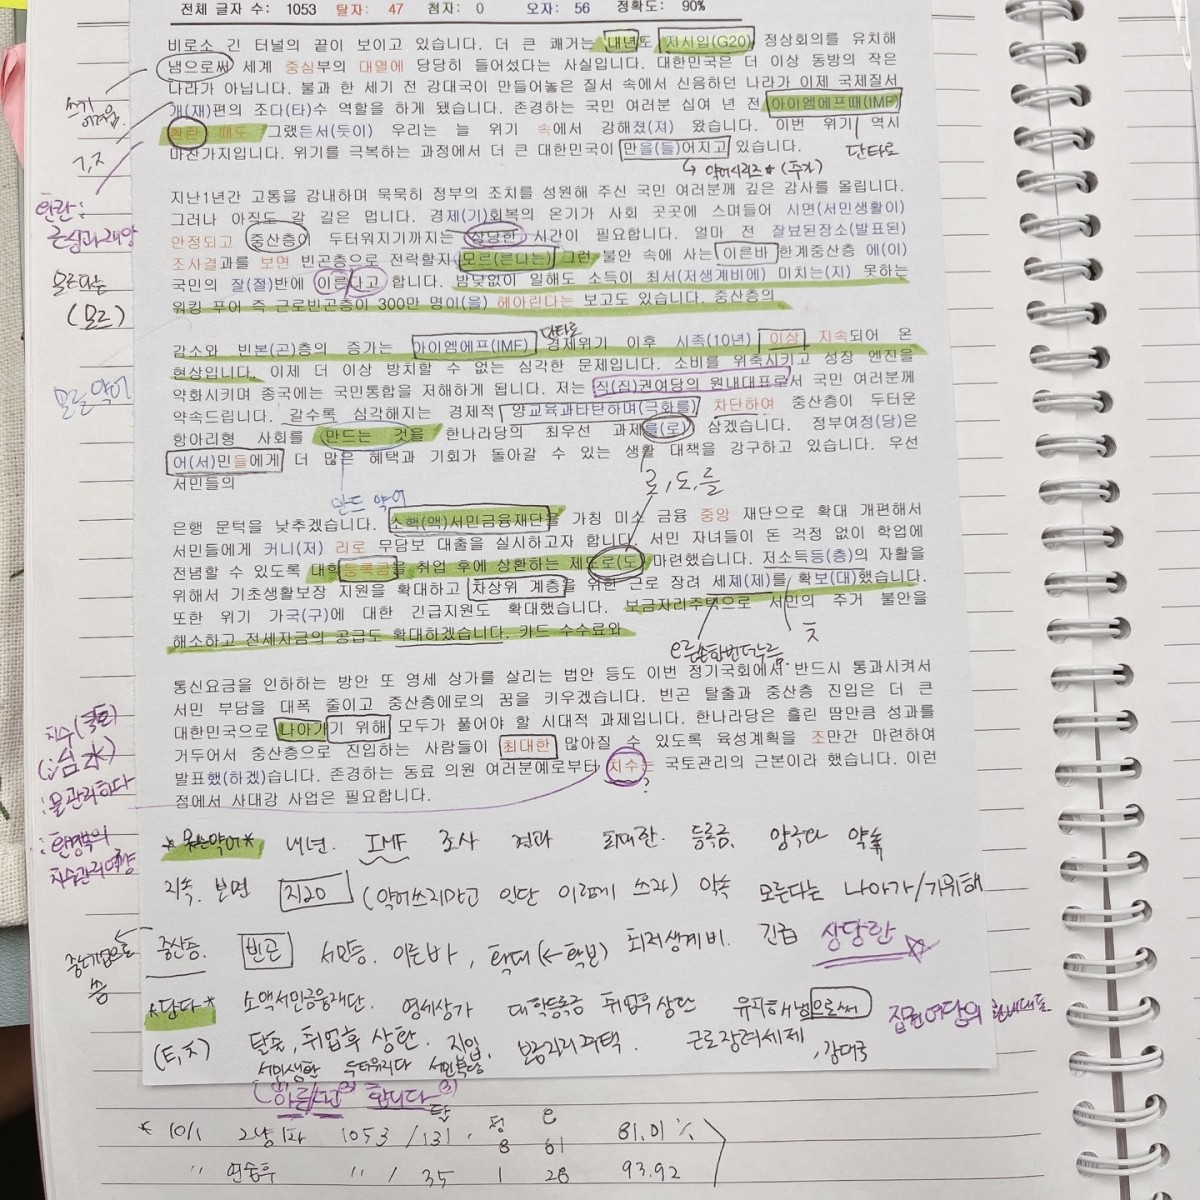 전체 글자 수: 1053 탈자: 47 첨자: 0 오자: 56 정확도: 90%
비로소 긴 터널의 끝이 보이고 있습니다. 더 큰 쾌거는 내년도 자시입(G20) 정상회의를 유치해
냄으로써 세계 중심부의 대열에 당당히 들어섰다는 사실입니다. 대한민국은 더 이상 동방의 작은
나라가 아닙니다. 불과 한 세기 전 강대국이 만들어놓은 질서 속에서 신음하던 나라가 이제 국제질서
개(재)편의 조다(타)수 역할을 하게 됐습니다. 존경하는 국민 여러분 십여 년 전 아이엠에프때(IMF
환란 때도 그랬든서(듯이) 우리는 늘 위기 속에서 강해졌(져) 왔습니다. 이번 위기 역시
마찬가지입니다. 위기를 극복하는 과정에서 더 큰 대한민국이 만을(들)어지고 있습니다.
ㄱ,ㅈ
단타로
환란:
지난1년간 고통을 감내하며 묵묵히 정부의 조치를 성원해 주신 국민 여러분께 깊은 감사를 올립니다.
그러나 아직도 갈 길은 멉니다. 경제(기)회복의 온기가 사회 곳곳에 스며들어 시면(서민생활이)
안정되고 중산층이 두터워지기까지는 상당한 시간이 필요합니다. 얼마 전 잘뵤된장소(발표된)
조사결과를 보면 빈곤층으로 전락할지 모르(른나는) 그런 불안 속에 사는 이른바 한계중산층 에(이)
국민의 잘(절)반에 이른다고 합니다. 밤낮없이 일해도 소득이 최서(저생계비에) 미치는(지) 못하는
워킹 푸어 즉 근로빈곤층이 300만 명이(을) 헤아린다는 보고도 있습니다. 중산층의
(모르)
단타로
감소와 빈본(곤)층의 증가는 아이엠에프(IMF) 경제위기 이후 시족(10년) 이상 지속되어 온
현상입니다. 이제 더 이상 방치할 수 없는 심각한 문제입니다. 소비를 위축시키고 성장 엔진을
약화시키며 종국에는 국민통합을 저해하게 됩니다. 저는 직(집)권여당의 원내대표로서 국민 여러분께
약속드립니다. 갈수록 심각해지는 경제적 양교육과타탄하며(극화를) 차단하여 중산층이 두터운
항아리형 사회를 만드는 것을 한나라당의 최우선 과제를(로) 삼겠습니다. 정부여정(당)은
어(서)민들에게 더 많은 혜택과 기회가 돌아갈 수 있는 생활 대책을 강구하고 있습니다. 우선
서민들의
만드 약어
로,도,를
은행 문턱을 낮추겠습니다. 소핵(액)서민금융재단을 가칭 미소 금융 중앙 재단으로 확대 개편해서
서민들에게 커니(저) 리로 무담보 대출을 실시하고자 합니다. 서민 자녀들이 돈 걱정 없이 학업에
전념할 수 있도록 대학등록금을 취업 후에 상환하는 제도로(도) 마련했습니다. 저소득등(층)의 자활을
위해서 기초생활보장 지원을 확대하고 차상위 계층을 위한 근로 장려 세졔(제)를 확보(대)했습니다.
또한 위기 가국(구)에 대한 긴급지원도 확대했습니다. 보금자리주택으로 서민의 주거 불안을
해소하고 전세자금의 공급도 확대하겠습니다. 카드 수수료와
ㅊ
통신요금을 인하하는 방안 또 영세 상가를 살리는 법안 등도 이번 정기국회에서 반드시 통과시켜서
서민 부담을 대폭 줄이고 중산층에로의 꿈을 키우겠습니다. 빈곤 탈출과 중산층 진입은 더 큰
대한민국으로 나아가기 위해 모두가 풀어야 할 시대적 과제입니다. 한나라당은 흘린 땀만큼 성과를
거두어서 중산층으로 진입하는 사람들이 최대한 많아질 수 있도록 육성계획을 조만간 마련하여
발표했(하겠)습니다. 존경하는 동료 의원 여러분예로부터 치수는 국토관리의 근본이라 했습니다. 이런
점에서 사대강 사업은 필요합니다.
?
: 물 관리하다
: 환경부의
내년. IMF 조사 결과 최대한. 등록금.
지속. 보면 지20 (약어쓰지말고 인단 이렇게 쓰자) 약속 모른다는 나아가/기위해
중산층. 빈곤 서민층. 이른바, 확대(<-확보) 최저생계비. 긴급 상당한
*단타* 소액서민금융재단. 영세상가 대학등록금 취업후상환 유치해냄으로써 집권여당의 원내대표
(ㅌ,ㅊ) 탈출, 취업후 상환. 진입. 보금자리주택. 근로장려세제, 강대국
서민생활 두터워지다 서민부담
* 10/1 2낭1파 1053 / 131, 정 8 오 61 81.01%
" 연습후 " / 35 1 28 93.92